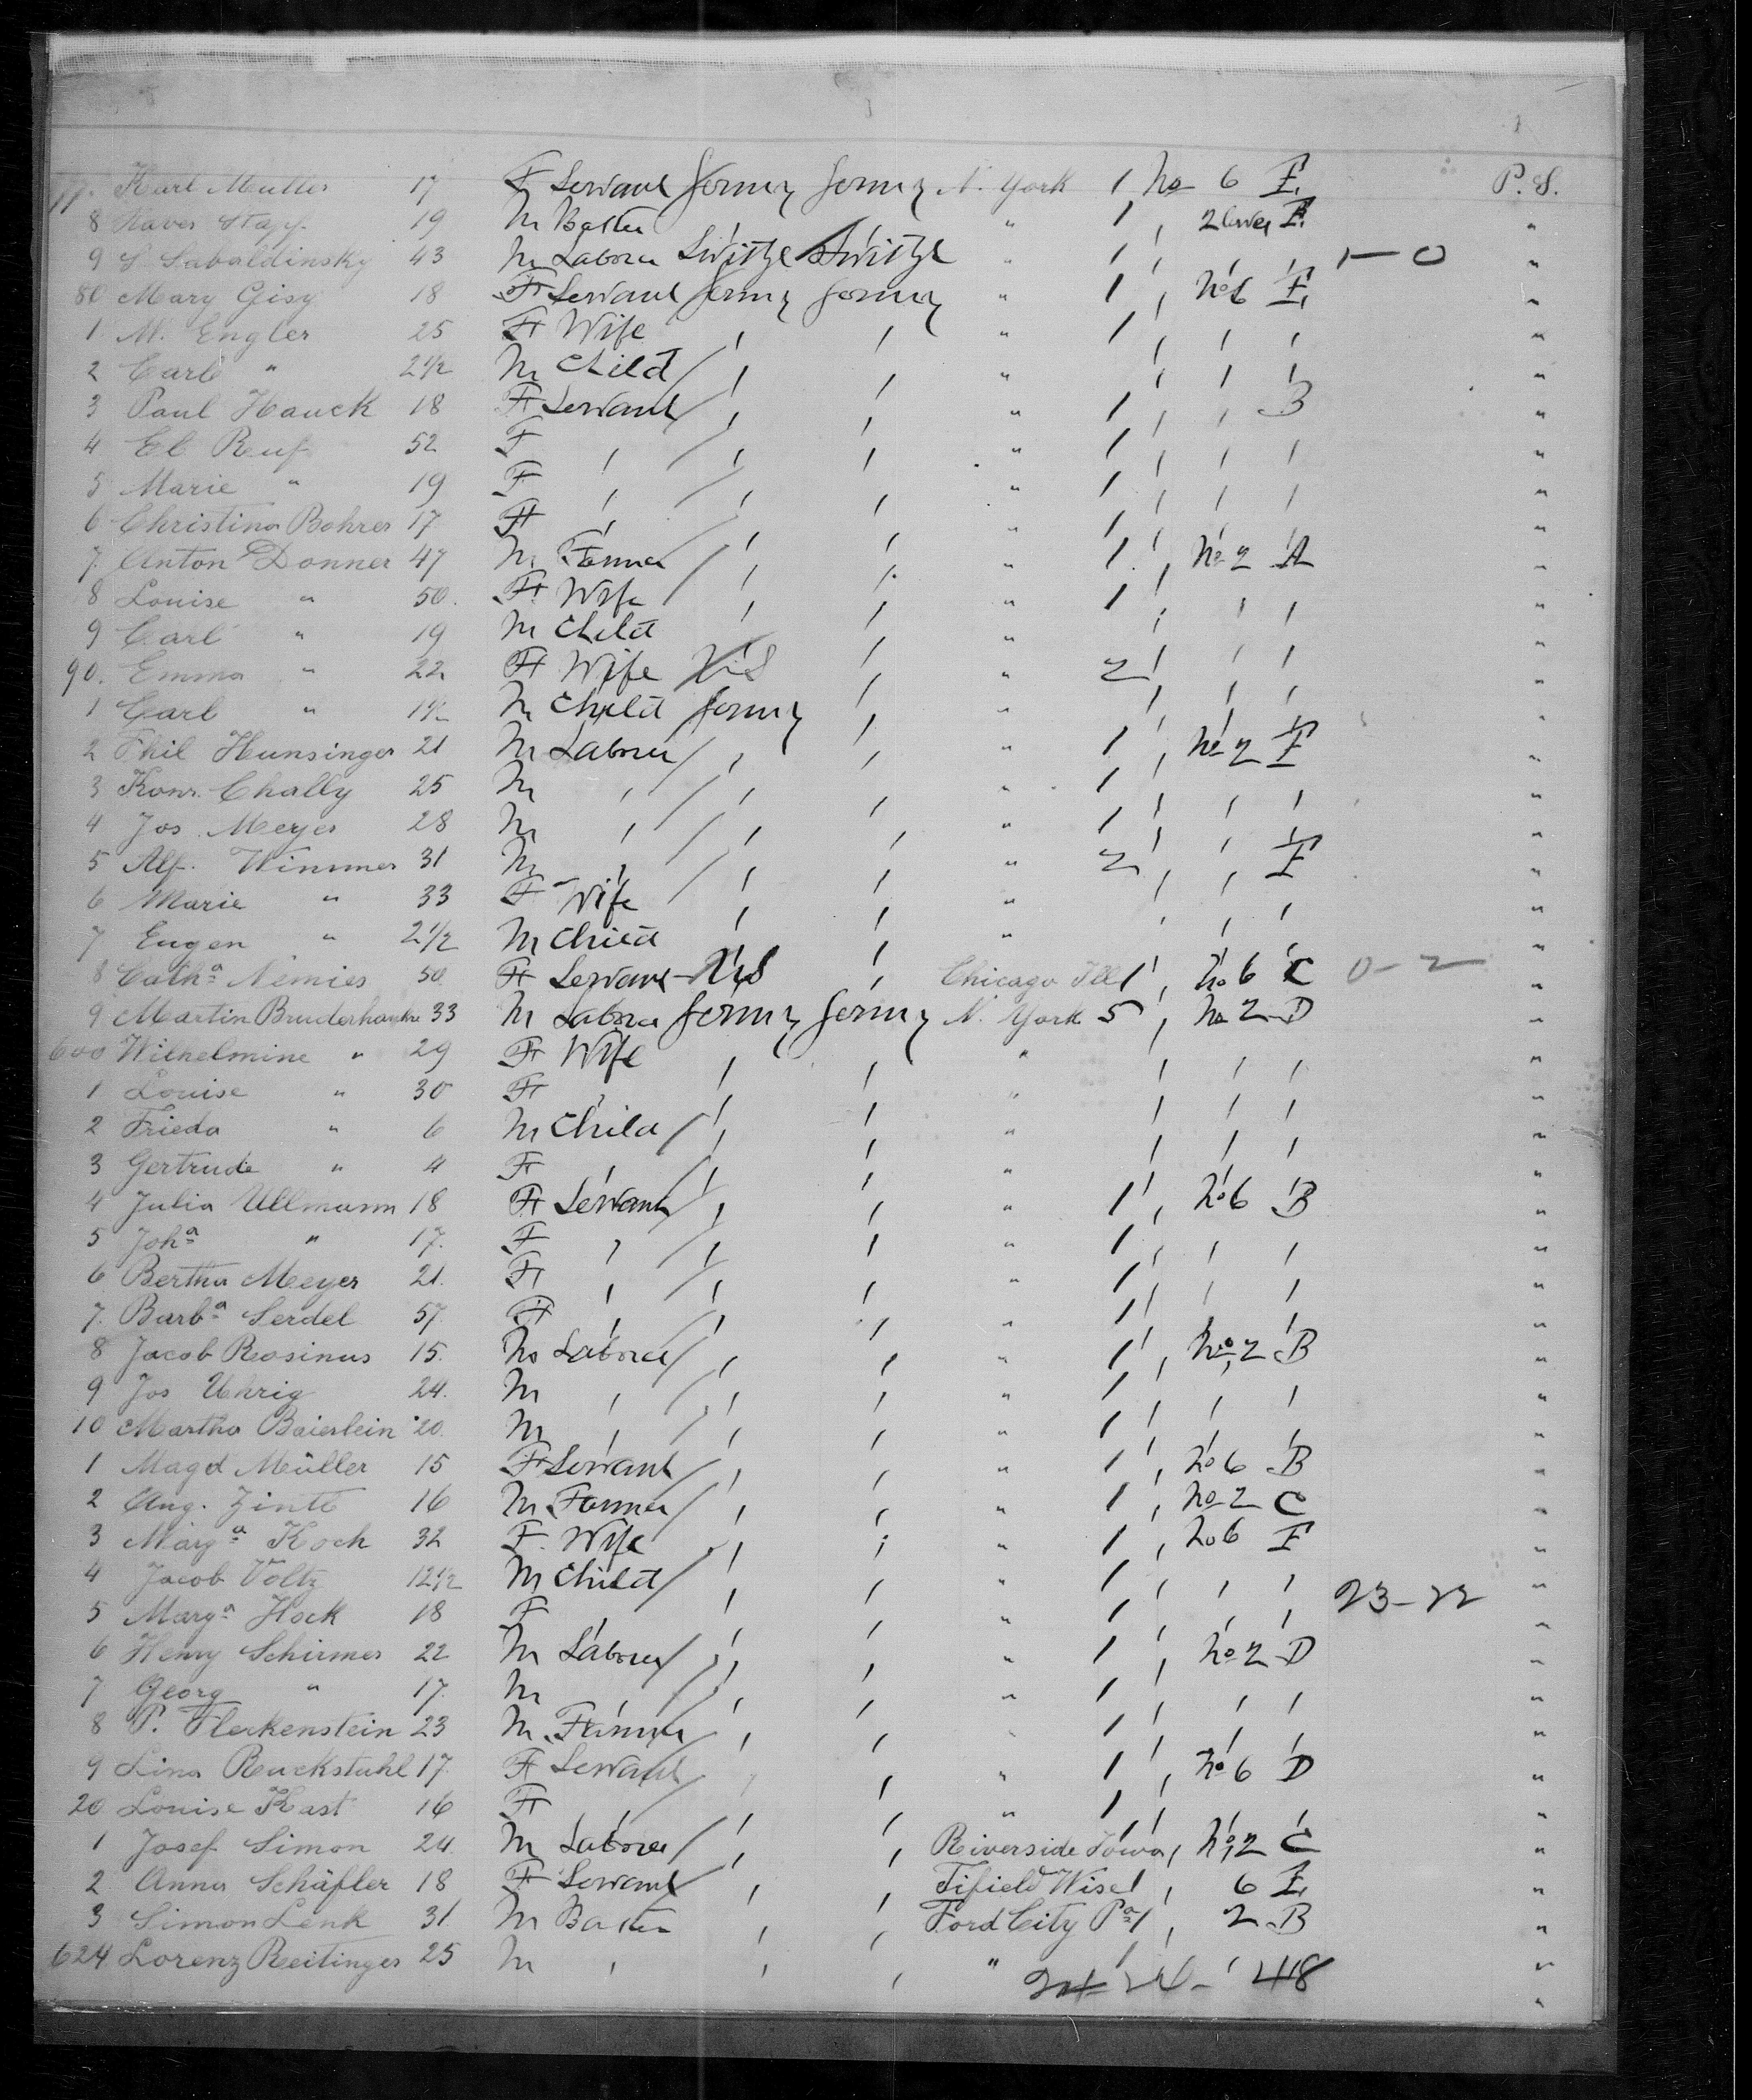 77. Karl Muller 17 F Servant Germy Germy N. York 1 No 6 E. P. S.
8 Xaver Stapf 19 M Baker " 1 , 2 lower E. "
9 S. Sabaldinsky 43 M Laborer Switze Switze " 1 ' , ' 1 — 0 "
80 Mary Gisy 18 F Servant Germy Germy " 1 , No 6 E, "
1 M. Engler 25 F Wife , , " 1 , , , "
2 Carl " 2 1/2 M Child , , " , , , "
3 Paul Hauck 18 F Servant , , " 1 , , B "
4 El Reuf 52 F , , , " 1 , , , "
5 Marie " 19 F , , , " 1 , , , "
6 Christina Bohrer 17 F , , , " 1 , , , "
7. Anton Donner 47 M Farmer , , " 1 , No 2 A "
8 Louise " 50. F Wife , , " 1 , , , "
9 Carl " 19 M Child , , " , , , "
90. Emma " 22 F Wife U.S , " 2 , , , "
1 Carl " 1 1/2 M Child Germy , " , , , "
2 Phil Hunsinger 21 M Laborer , , " 1 , No 2 E "
3 Konr. Chally 25 M , , , " 1 , , , "
4 Jos. Meyer 28 M , , , " 1 , , , "
5 Alf. Wimmer 31 M , , , " 2 , , E "
6 Marie " 33 F Wife , , " , , , "
7 Eugen " 2 1/2 M Child , , " , , , "
8 Catha Nemies 50 F Servant U.S , Chicago Ill 1 , No 6 C 0 - 2 "
9 Martin Bruderhaushn 33 M Laborer Germy Germy N. York 5 , No 2 D "
600 Wilhelmine " 29 F Wife , , " , , , "
1 Louise " 30 F , , , " , , , "
2 Frieda " 6 M Child , , " , , , "
3 Gertrude " 4 F , , , " , , , "
4 Julia Ullmann 18 F Servant , , " 1 , No 6 B "
5 Joha " 17. F , , , " 1 , , , "
6 Bertha Meeyer 21. F , , , " 1 , , , "
7. Barba Serdel 57. F , , , " 1 , , , "
8 Jacob Rosinus 15. M Laborer , , " 1 , No 2 B "
9 Jos Uhrig 24. M , , , " 1 , , , "
10 Martha Baierlein 20. M , , , " 1 , , , "
1 Magd Müller 15 F Servant , , " 1 , No 6 B "
2 Aug. Zinte 16 M Farmer , , " 1 , No 2 C "
3 Marga Koch 32 F. Wife , , " 1 , No 6 E "
4 Jacob Voltz 12 1/2 M Child , , " 1 , , , "
5 Marga Hock 18 F , , , " 1 , , , 23 - 22 "
6 Henry Schirmer 22 M Laborer , , " 1 , No 2 D "
7 Georg " 17. M , , , " 1 , , , "
8 P. Flerkenstein 23 M Farmer , , " 1 , , , "
9 Lina Ruckstuhl 17. F Servant , , " 1 , No 6 D "
20 Louise Kast 16 F , , , " 1 , , , "
1 Josef Simon 24. M Laborer , , Riverside Iowa 1 , No 2 C "
2 Anna Schäfler 18 F Servant , , Fifield Wisc 1 , 6 E, "
3 Simon Lenk 31. M Baker , , Ford City Pa 1 , 2 B "
624 Lorenz Reitinger 25 M , , , " 1 , "
24 - 418 "